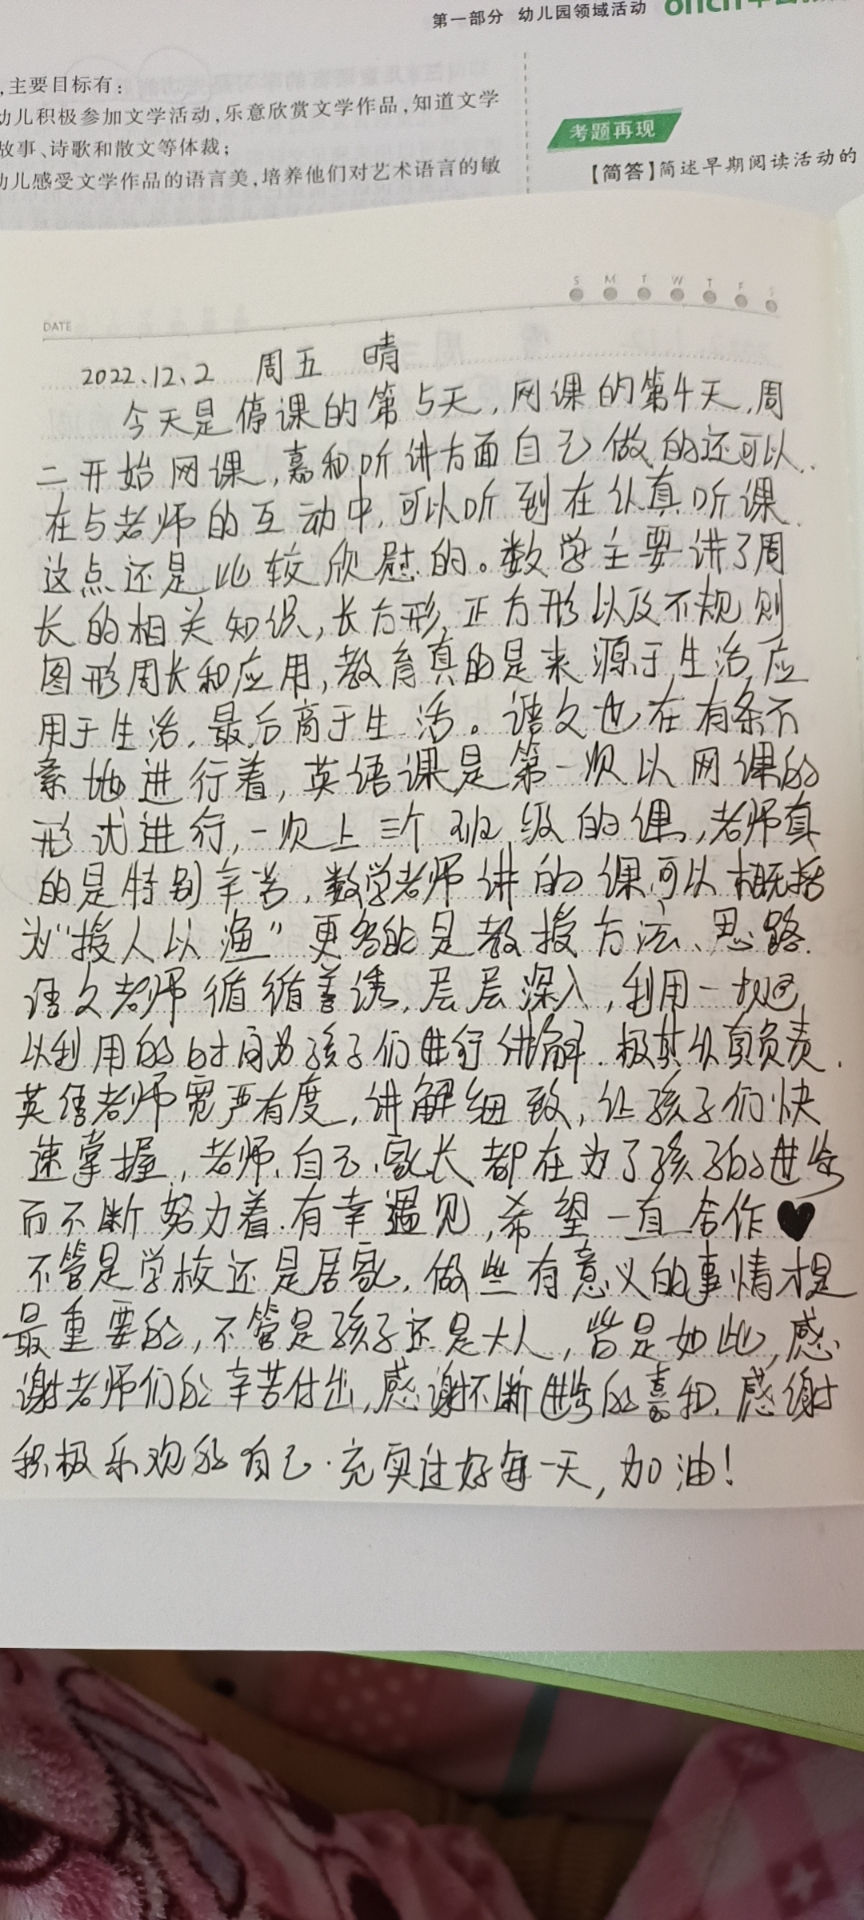 第一部分 幼儿园领域活动
,主要目标有:
幼儿积极参加文学活动,乐意欣赏文学作品,知道文学
故事、诗歌和散文等体裁;
幼儿感受文学作品的语言美,培养他们对艺术语言的敏
考题再现
【简答】简述早期阅读活动的
S M T W T F S
DATE
2022.12.2 周五 晴
今天是停课的第5天,网课的第4天,周
二开始网课,嘉和听讲方面自己做的还可以,
在与老师的互动中,可以听到在认真听课,
这点还是比较欣慰的。数学主要讲了周
长的相关知识,长方形,正方形以及不规则
图形周长和应用,教育真的是来源于生活,应
用于生活,最后高于生活。语文也在有条不
紊地进行着,英语课是第一次以网课的
形式进行,一次上三个班级的课,老师真
的是特别辛苦,数学老师讲的课可以概括
为“授人以渔”更多的是教授方法、思路.
语文老师循循善诱,层层深入,利用一切可
以利用的时间为孩子们进行讲解.极其认真负责.
英语老师宽严有度,讲解细致,让孩子们快
速掌握,老师、自己、家长都在为了孩子的进步
而不断努力着.有幸遇见,希望一直合作♥
不管是学校还是居家,做些有意义的事情才是
最重要的,不管是孩子还是大人,皆是如此,感
谢老师们的辛苦付出,感谢不断进步的嘉和.感谢
积极乐观的自己.充实过好每一天,加油!